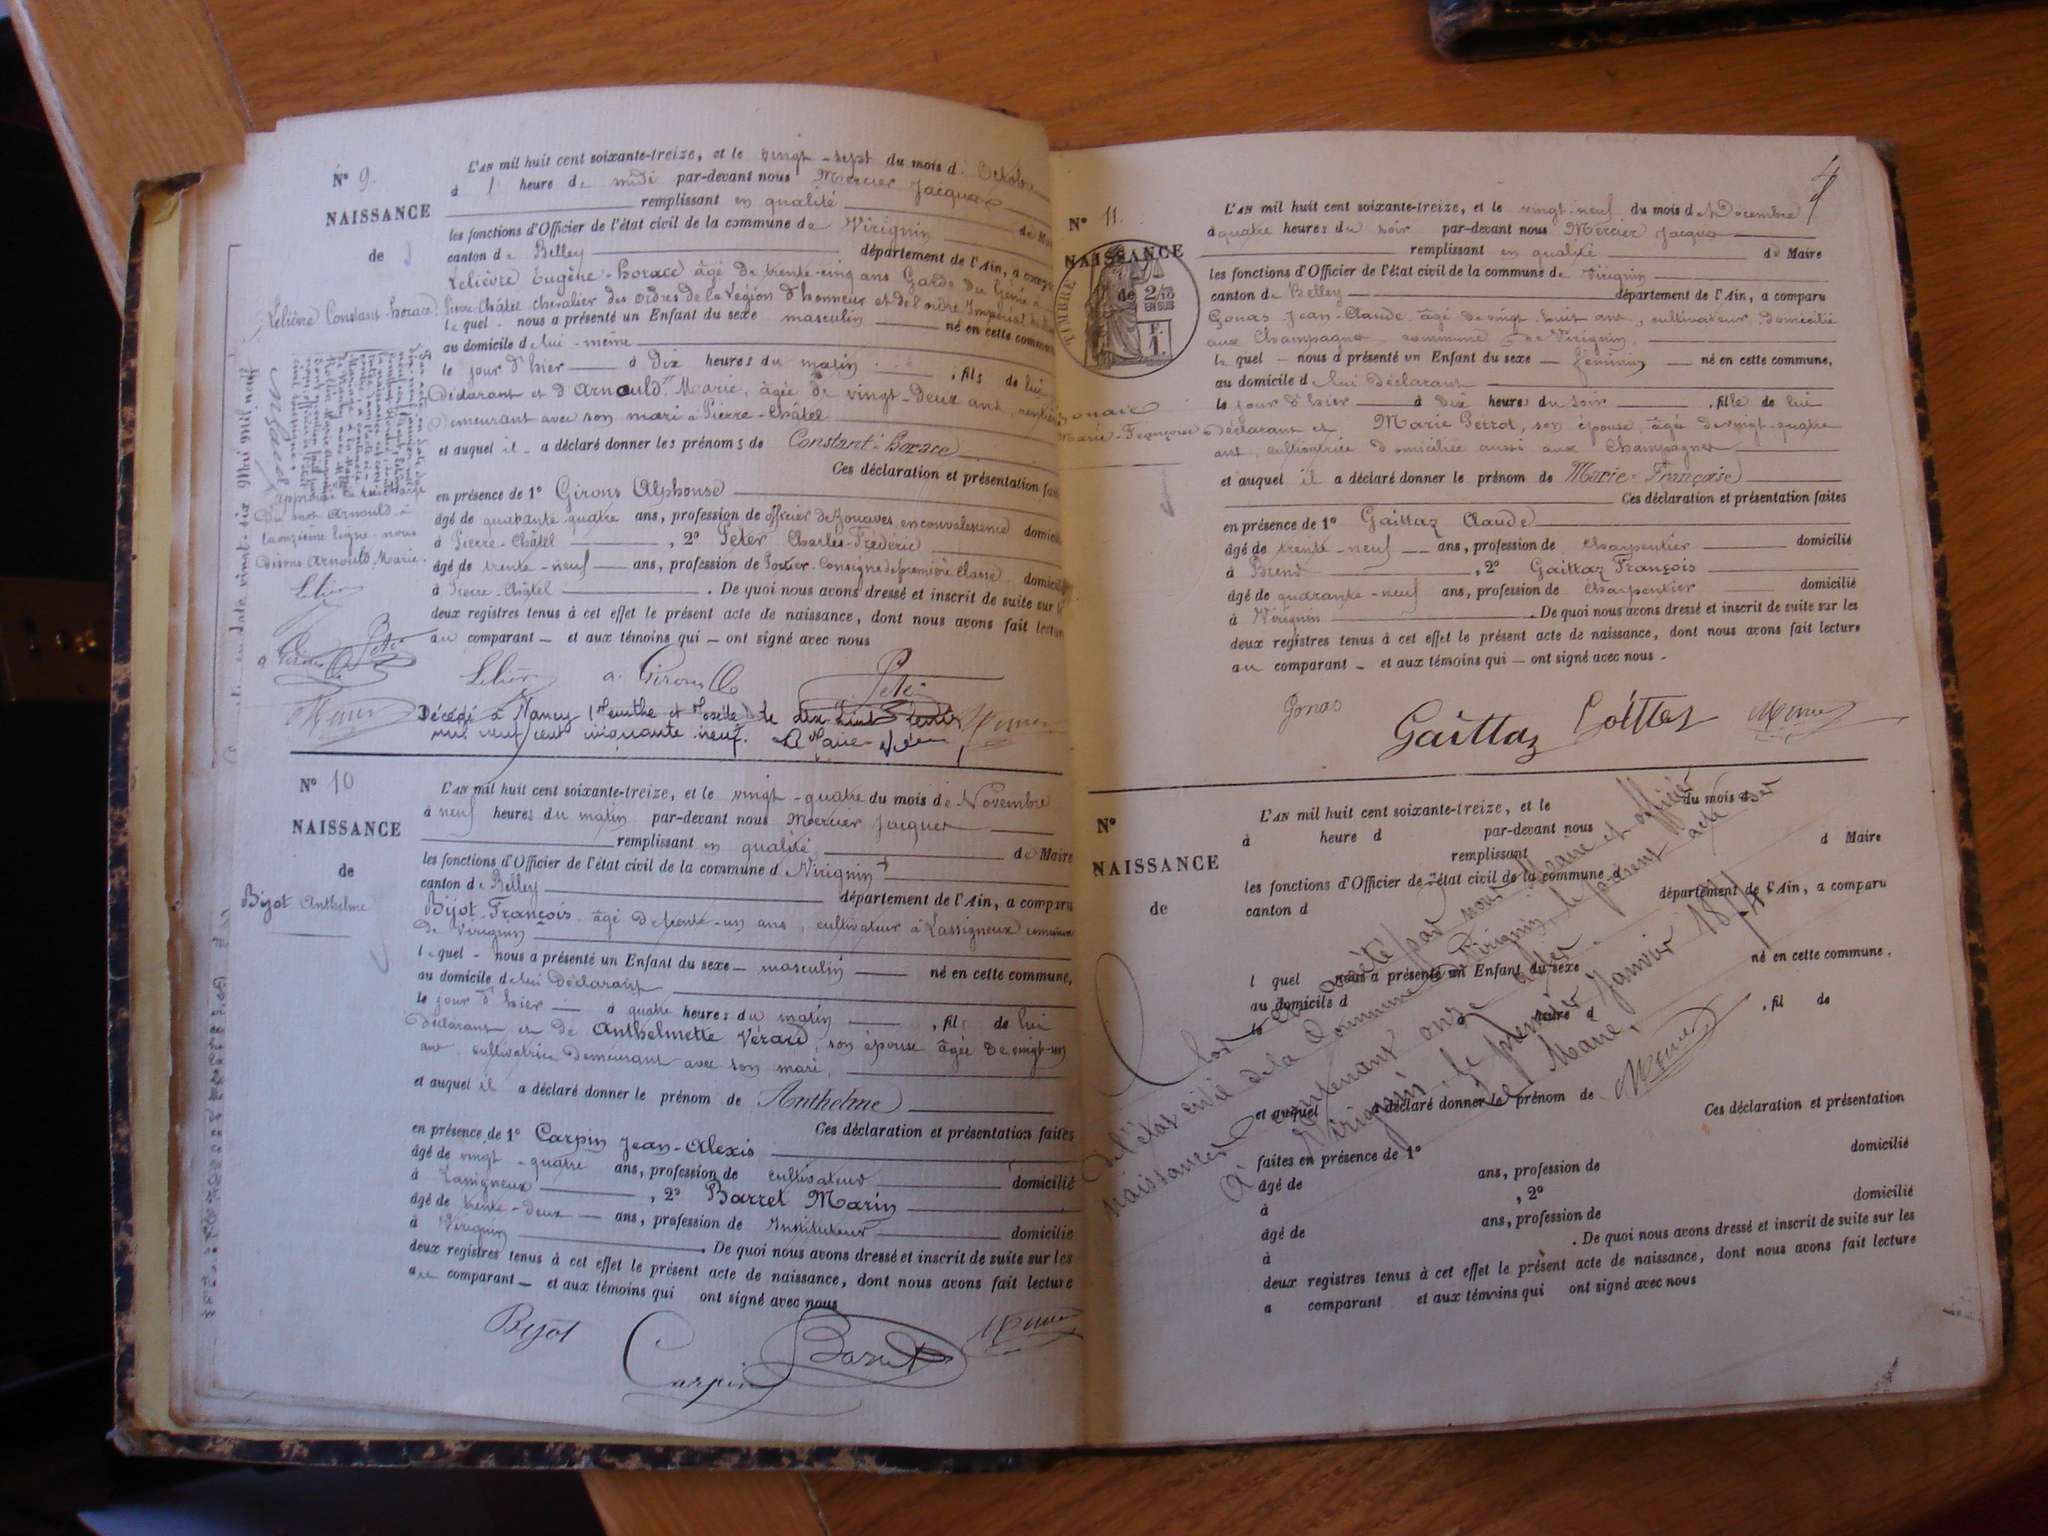 N° 9.
NAISSANCE
de
Lelièvre Constant-Horace
L'AN mil huit cent soixante-treize, et le vingt-sept du mois d'Octobre
à 1 heure de midi par-devant nous Mercier Jacques
remplissant en qualité de Maire
les fonctions d'Officier de l'état civil de la commune de Virignin
canton de Belley département de l'Ain, a comparu
Lelièvre Eugène-Horace âgé de trente-cinq ans Garde du Génie à
Pierre-Châtel chevalier des ordres de la Légion d'honneur et de l'ordre Impérial du
lequel nous a présenté un Enfant du sexe masculin né en cette commune
au domicile de lui-même
le jour d'hier à dix heures du matin, fils de lui
Déclarant et d'Arnould Marie, âgée de vingt-deux ans,
Demeurant avec son mari à Pierre-Châtel
et auquel il a déclaré donner les prénoms de Constant-Horace
Ces déclaration et présentation faites
en présence de 1° Girons Alphonse
âgé de quarante-quatre ans, profession de officier de Zouaves, en convalescence domicilié
à Pierre-Châtel, 2° Peter Charles-Frédéric
âgé de trente-neuf ans, profession de Portier-Consigne de première classe domicilié
à Pierre-Châtel. De quoi nous avons dressé et inscrit de suite sur les
deux registres tenus à cet effet le présent acte de naissance, dont nous avons fait lecture
au comparant et aux témoins qui ont signé avec nous
approuvé la surcharge
du mot Arnould à
la onzième ligne nous
disons Arnould Marie.
Lelièvre a. Girons Peter Mercier
Décédé à Nancy (Meurthe et Moselle) le dix huit
mil neuf cent cinquante neuf.
N° 10
NAISSANCE
de
Bijot Anthelme
L'AN mil huit cent soixante-treize, et le vingt-quatre du mois de Novembre
à neuf heures du matin par-devant nous Mercier Jacques
remplissant en qualité de Maire
les fonctions d'Officier de l'état civil de la commune d Virignin
canton de Belley département de l'Ain, a comparu
Bijot François âgé de trente-un ans, cultivateur à Lassigneux commune
de Virignin
lequel nous a présenté un Enfant du sexe masculin né en cette commune,
au domicile de lui Déclarant
le jour d'hier à quatre heures du matin, fils de lui
déclarant et de Anthelmette Vérard, son épouse âgée de vingt-un
ans cultivatrice demeurant avec son mari.
et auquel il a déclaré donner le prénom de Anthelme
Ces déclaration et présentation faites
en présence de 1° Carpin Jean-Alexis
âgé de vingt-quatre ans, profession de cultivateur domicilié
à Lassigneux, 2° Barret Marin
âgé de trente-deux ans, profession de Instituteur domicilié
à Virignin. De quoi nous avons dressé et inscrit de suite sur les
deux registres tenus à cet effet le présent acte de naissance, dont nous avons fait lecture
au comparant et aux témoins qui ont signé avec nous
Bijot Carpin Barret Mercier
4
N° 11.
NAISSANCE
de
TIMBRE
2/10
EN SUS
F.
1.
Marie-Françoise
L'AN mil huit cent soixante-treize, et le vingt-neuf du mois de Décembre
à quatre heures du soir par-devant nous Mercier Jacques
remplissant en qualité de Maire
les fonctions d'Officier de l'état civil de la commune de Virignin
canton de Belley département de l'Ain, a comparu
Gonas Jean-Claude âgé de vingt-huit ans, cultivateur domicilié
aux Champagnes commune de Virignin.
lequel nous a présenté un Enfant du sexe féminin né en cette commune,
au domicile de lui déclarant
le jour d'hier à dix heures du soir, fille de lui
déclarant et Marie Perrot, son épouse âgée de vingt-quatre
ans, cultivatrice domiciliée aussi aux Champagnes
et auquel il a déclaré donner le prénom de Marie-Françoise
Ces déclaration et présentation faites
en présence de 1° Gaittaz Claude
âgé de trente-neuf ans, profession de charpentier domicilié
à Brens, 2° Gaittaz François
âgé de quarante-neuf ans, profession de charpentier domicilié
à Virignin. De quoi nous avons dressé et inscrit de suite sur les
deux registres tenus à cet effet le présent acte de naissance, dont nous avons fait lecture
au comparant et aux témoins qui ont signé avec nous.
Gonas Gaittaz Mercier
N°
NAISSANCE
de
L'AN mil huit cent soixante-treize, et le du mois d
à heure d par-devant nous
remplissant d Maire
les fonctions d'Officier de l'état civil de la commune d
canton d département de l'Ain, a comparu
l quel nous a présenté un Enfant du sexe né en cette commune,
au domicile d
le heure d, fil de
et auquel a déclaré donner le prénom de
Ces déclaration et présentation
faites en présence de 1°
âgé de ans, profession de domicilié
à, 2°
âgé de ans, profession de domicilié
à. De quoi nous avons dressé et inscrit de suite sur les
deux registres tenus à cet effet le présent acte de naissance, dont nous avons fait lecture
a comparant et aux témoins qui ont signé avec nous
Clos et arrêté par nous Maire et officier
de l'état civil de la Commune de Virignin, le présent acte des
naissances contenant onze actes.
A Virignin, le premier Janvier 1874
Le Maire,
Mercier